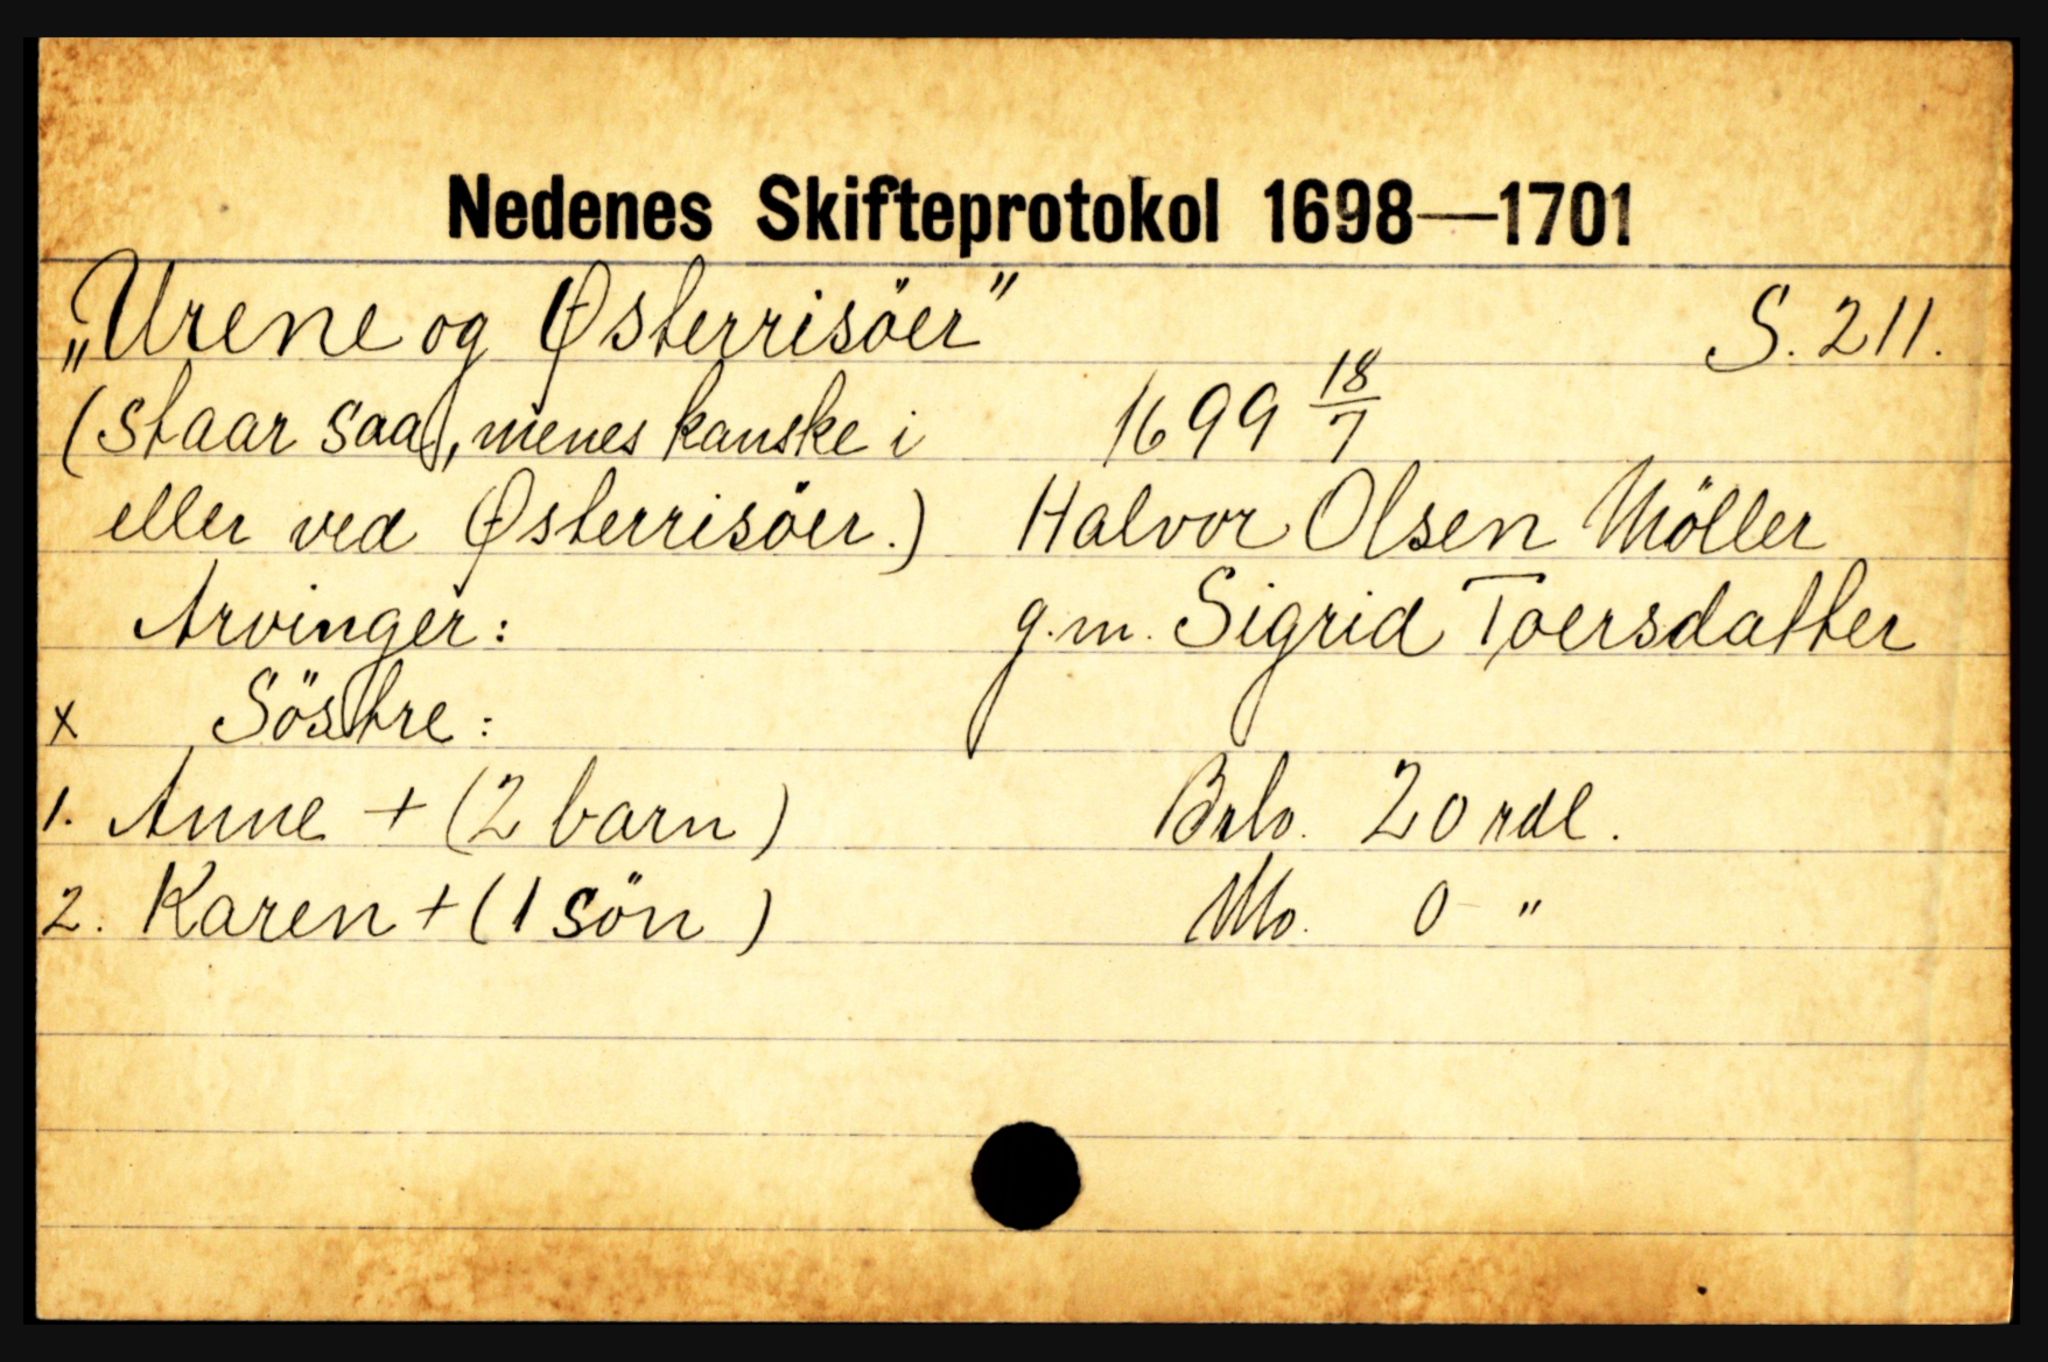 Nedenes Skifteprotokol 1698—1701
„Urene og Østerrisöer" S. 211.
(staar saa, menes kanske i 1699 18/7
eller ved Østerrisöer.) Halvor Olsen Möller
Arvinger: g.m. Sigrid Toersdatter
x Söstre:
1. Anne + (2 barn) Brlo. 20 rdl.
2. Karen + (1 sön) Nlo. 0 "